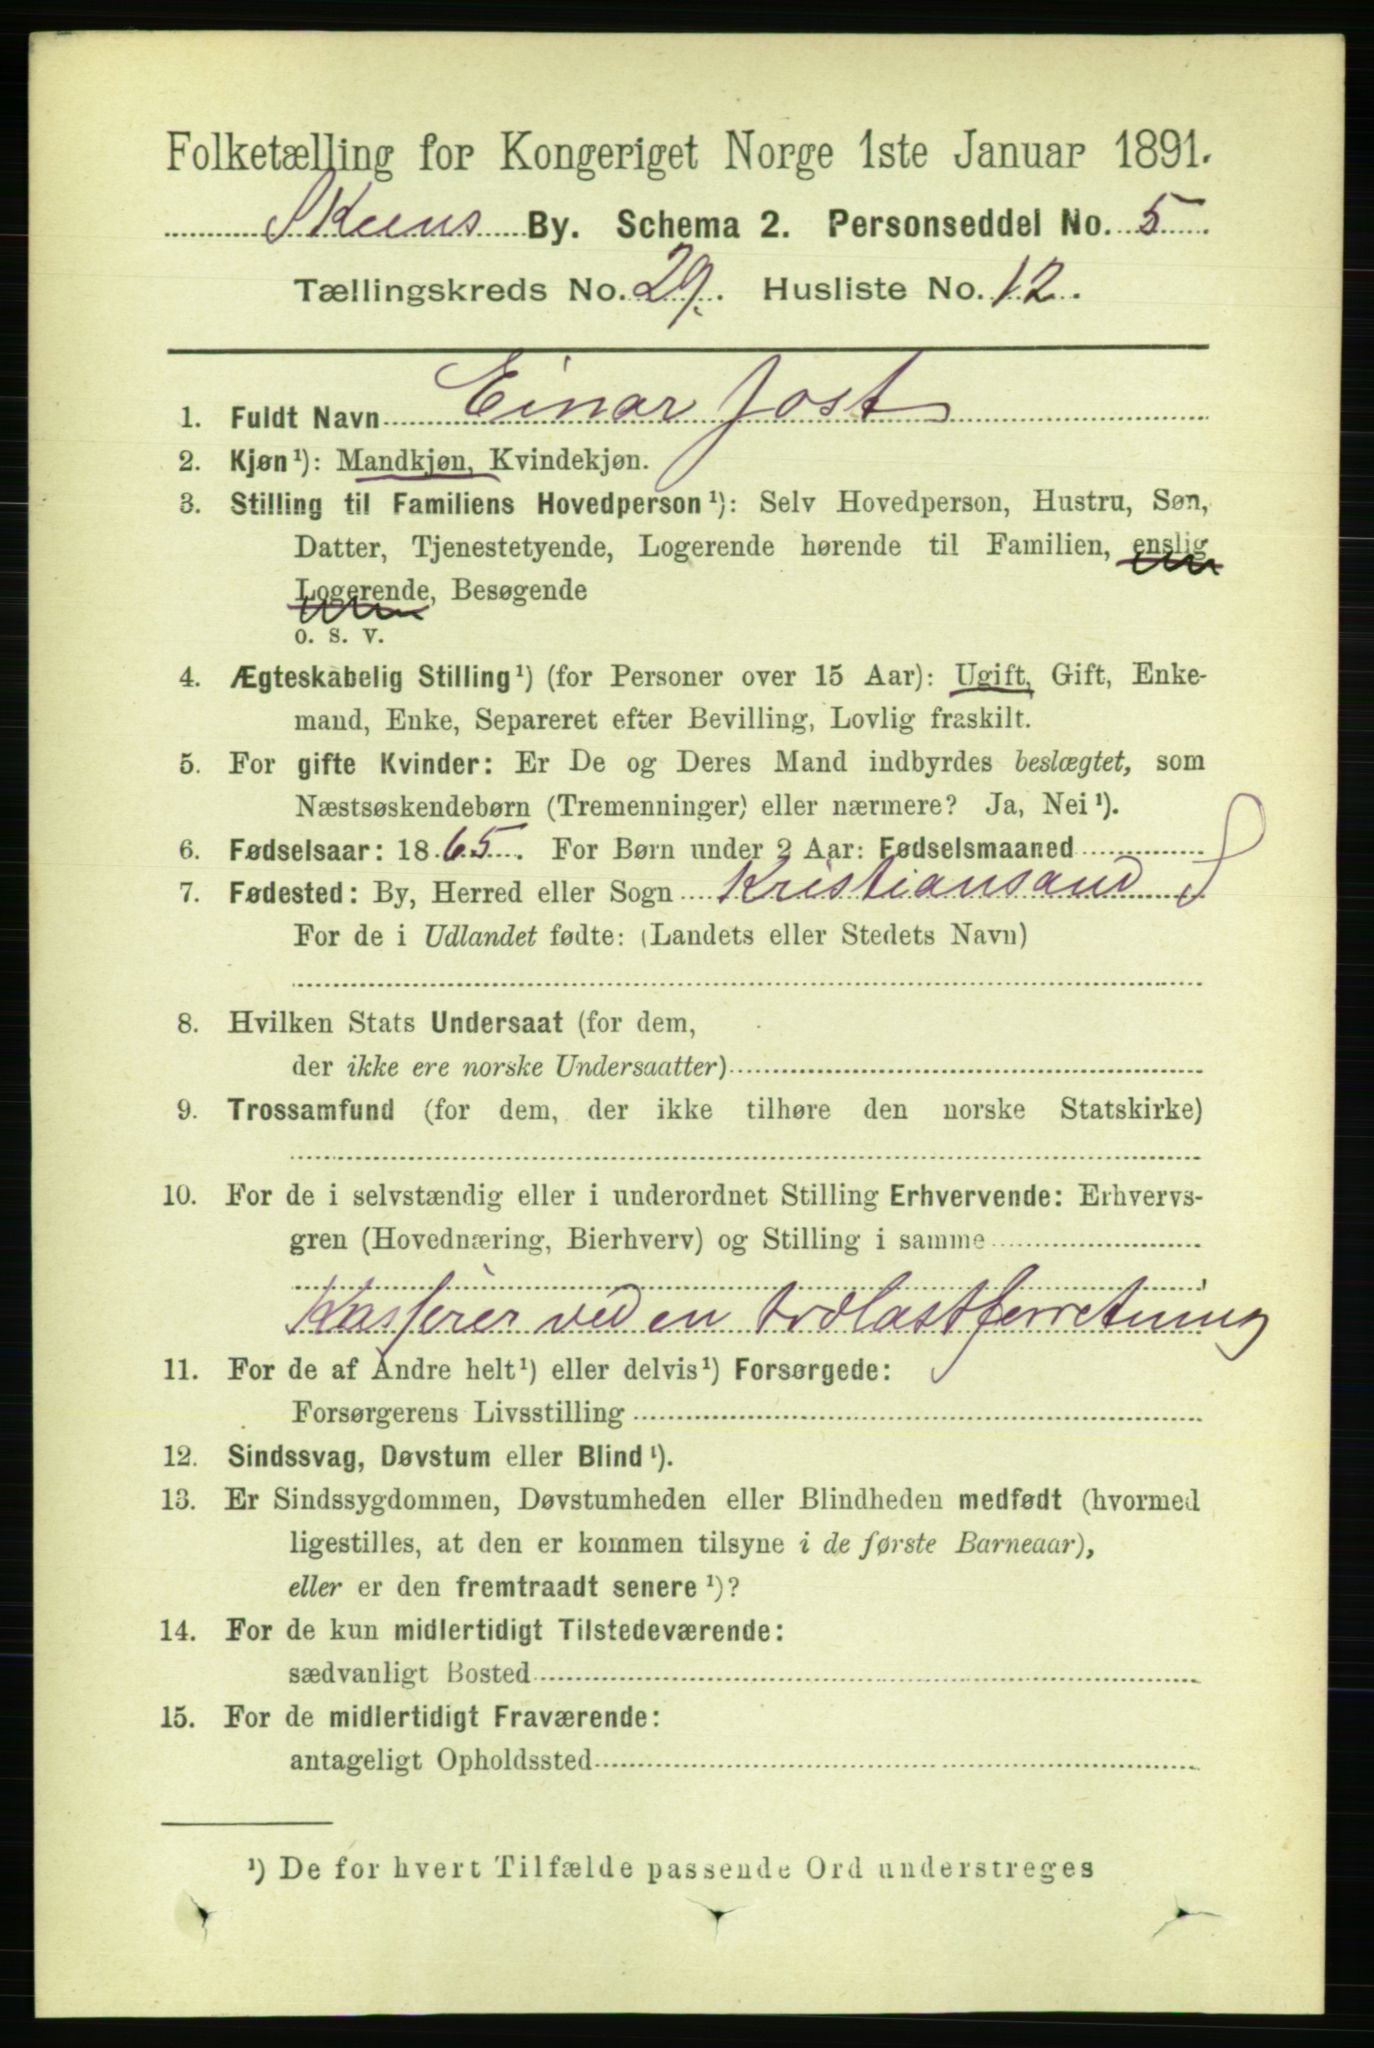 Folketælling for Kongeriget Norge 1ste Januar 1891.
Skiens By. Schema 2. Personseddel No. 5
Tællingskreds No. 29. Husliste No. 12.
1. Fuldt Navn Einar Jost
2. Kjøn¹): Mandkjøn, Kvindekjøn.
3. Stilling til Familiens Hovedperson¹): Selv Hovedperson, Hustru, Søn,
Datter, Tjenestetyende, Logerende hørende til Familien, enslig
Logerende, Besøgende
o. s. v.
4. Ægteskabelig Stilling¹) (for Personer over 15 Aar): Ugift, Gift, Enke-
mand, Enke, Separeret efter Bevilling, Lovlig fraskilt.
5. For gifte Kvinder: Er De og Deres Mand indbyrdes beslægtet, som
Næstsøskendebørn (Tremenninger) eller nærmere? Ja, Nei¹).
6. Fødselsaar: 1865. For Børn under 2 Aar: Fødselsmaaned
7. Fødested: By, Herred eller Sogn Kristiansand S
For de i Udlandet fødte: (Landets eller Stedets Navn)
8. Hvilken Stats Undersaat (for dem,
der ikke ere norske Undersaatter)
9. Trossamfund (for dem, der ikke tilhøre den norske Statskirke)
10. For de i selvstændig eller i underordnet Stilling Erhvervende: Erhvervs-
gren (Hovednæring, Bierhverv) og Stilling i samme
Kasserer ved en trælastforretning
11. For de af Andre helt¹) eller delvis¹) Forsørgede:
Forsørgerens Livsstilling
12. Sindssvag, Døvstum eller Blind¹).
13. Er Sindssygdommen, Døvstumheden eller Blindheden medfødt (hvormed
ligestilles, at den er kommen tilsyne i de første Barneaar),
eller er den fremtraadt senere¹)?
14. For de kun midlertidigt Tilstedeværende:
sædvanligt Bosted
15. For de midlertidigt Fraværende:
antageligt Opholdssted
¹) De for hvert Tilfælde passende Ord understreges